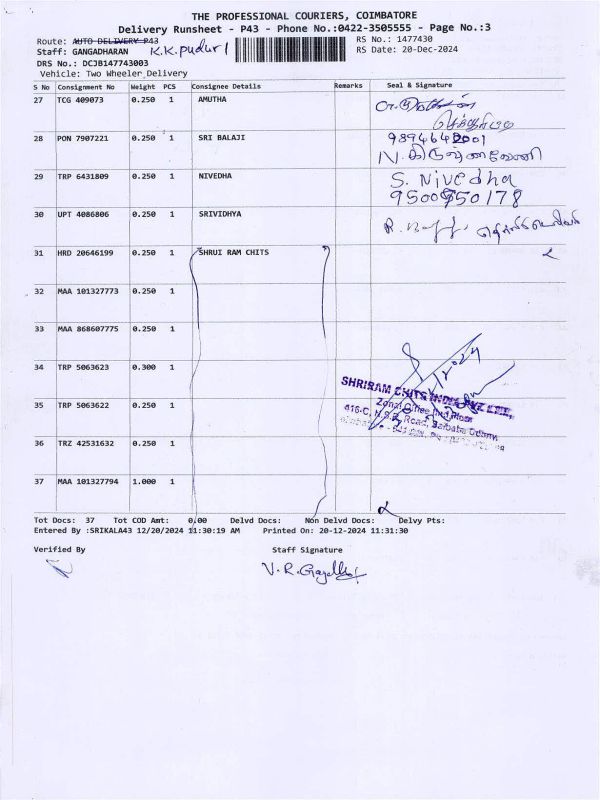 THE PROFESSIONAL COURIERS, COIMBATORE
Delivery Runsheet - P43 - Phone No.:0422-3505555 - Page No.:3
Route: AUTO DELIVERY P43 K.K.pudur RS No.: 1477430
Staff: GANGADHARAN RS Date: 20-Dec-2024
DRS No.: DCJB147743003
Vehicle: Two Wheeler Delivery
S No Consignment No Weight PCS Consignee Details Remarks Seal & Signature
27 TCG 409073 0.250 1 AMUTHA
28 PON 7907221 0.250 1 SRI BALAJI 9894642001
29 TRP 6431809 0.250 1 NIVEDHA S. Nivedha
9500950178
30 UPT 4086806 0.250 1 SRIVIDHYA
31 HRD 20646199 0.250 1 SHRUI RAM CHITS
32 MAA 101327773 0.250 1
33 MAA 868607775 0.250 1
34 TRP 5063623 0.300 1
SHRIRAM CHITS
35 TRP 5063622 0.250 1
Zonal Office
416-C, N.S.R. Road, Saibaba Colony,
36 TRZ 42531632 0.250 1
37 MAA 101327794 1.000 1
Tot Docs: 37 Tot COD Amt: 0.00 Delvd Docs: Non Delvd Docs: Delvy Pts:
Entered By :SRIKALA43 12/20/2024 11:30:19 AM Printed On: 20-12-2024 11:31:30
Verified By Staff Signature